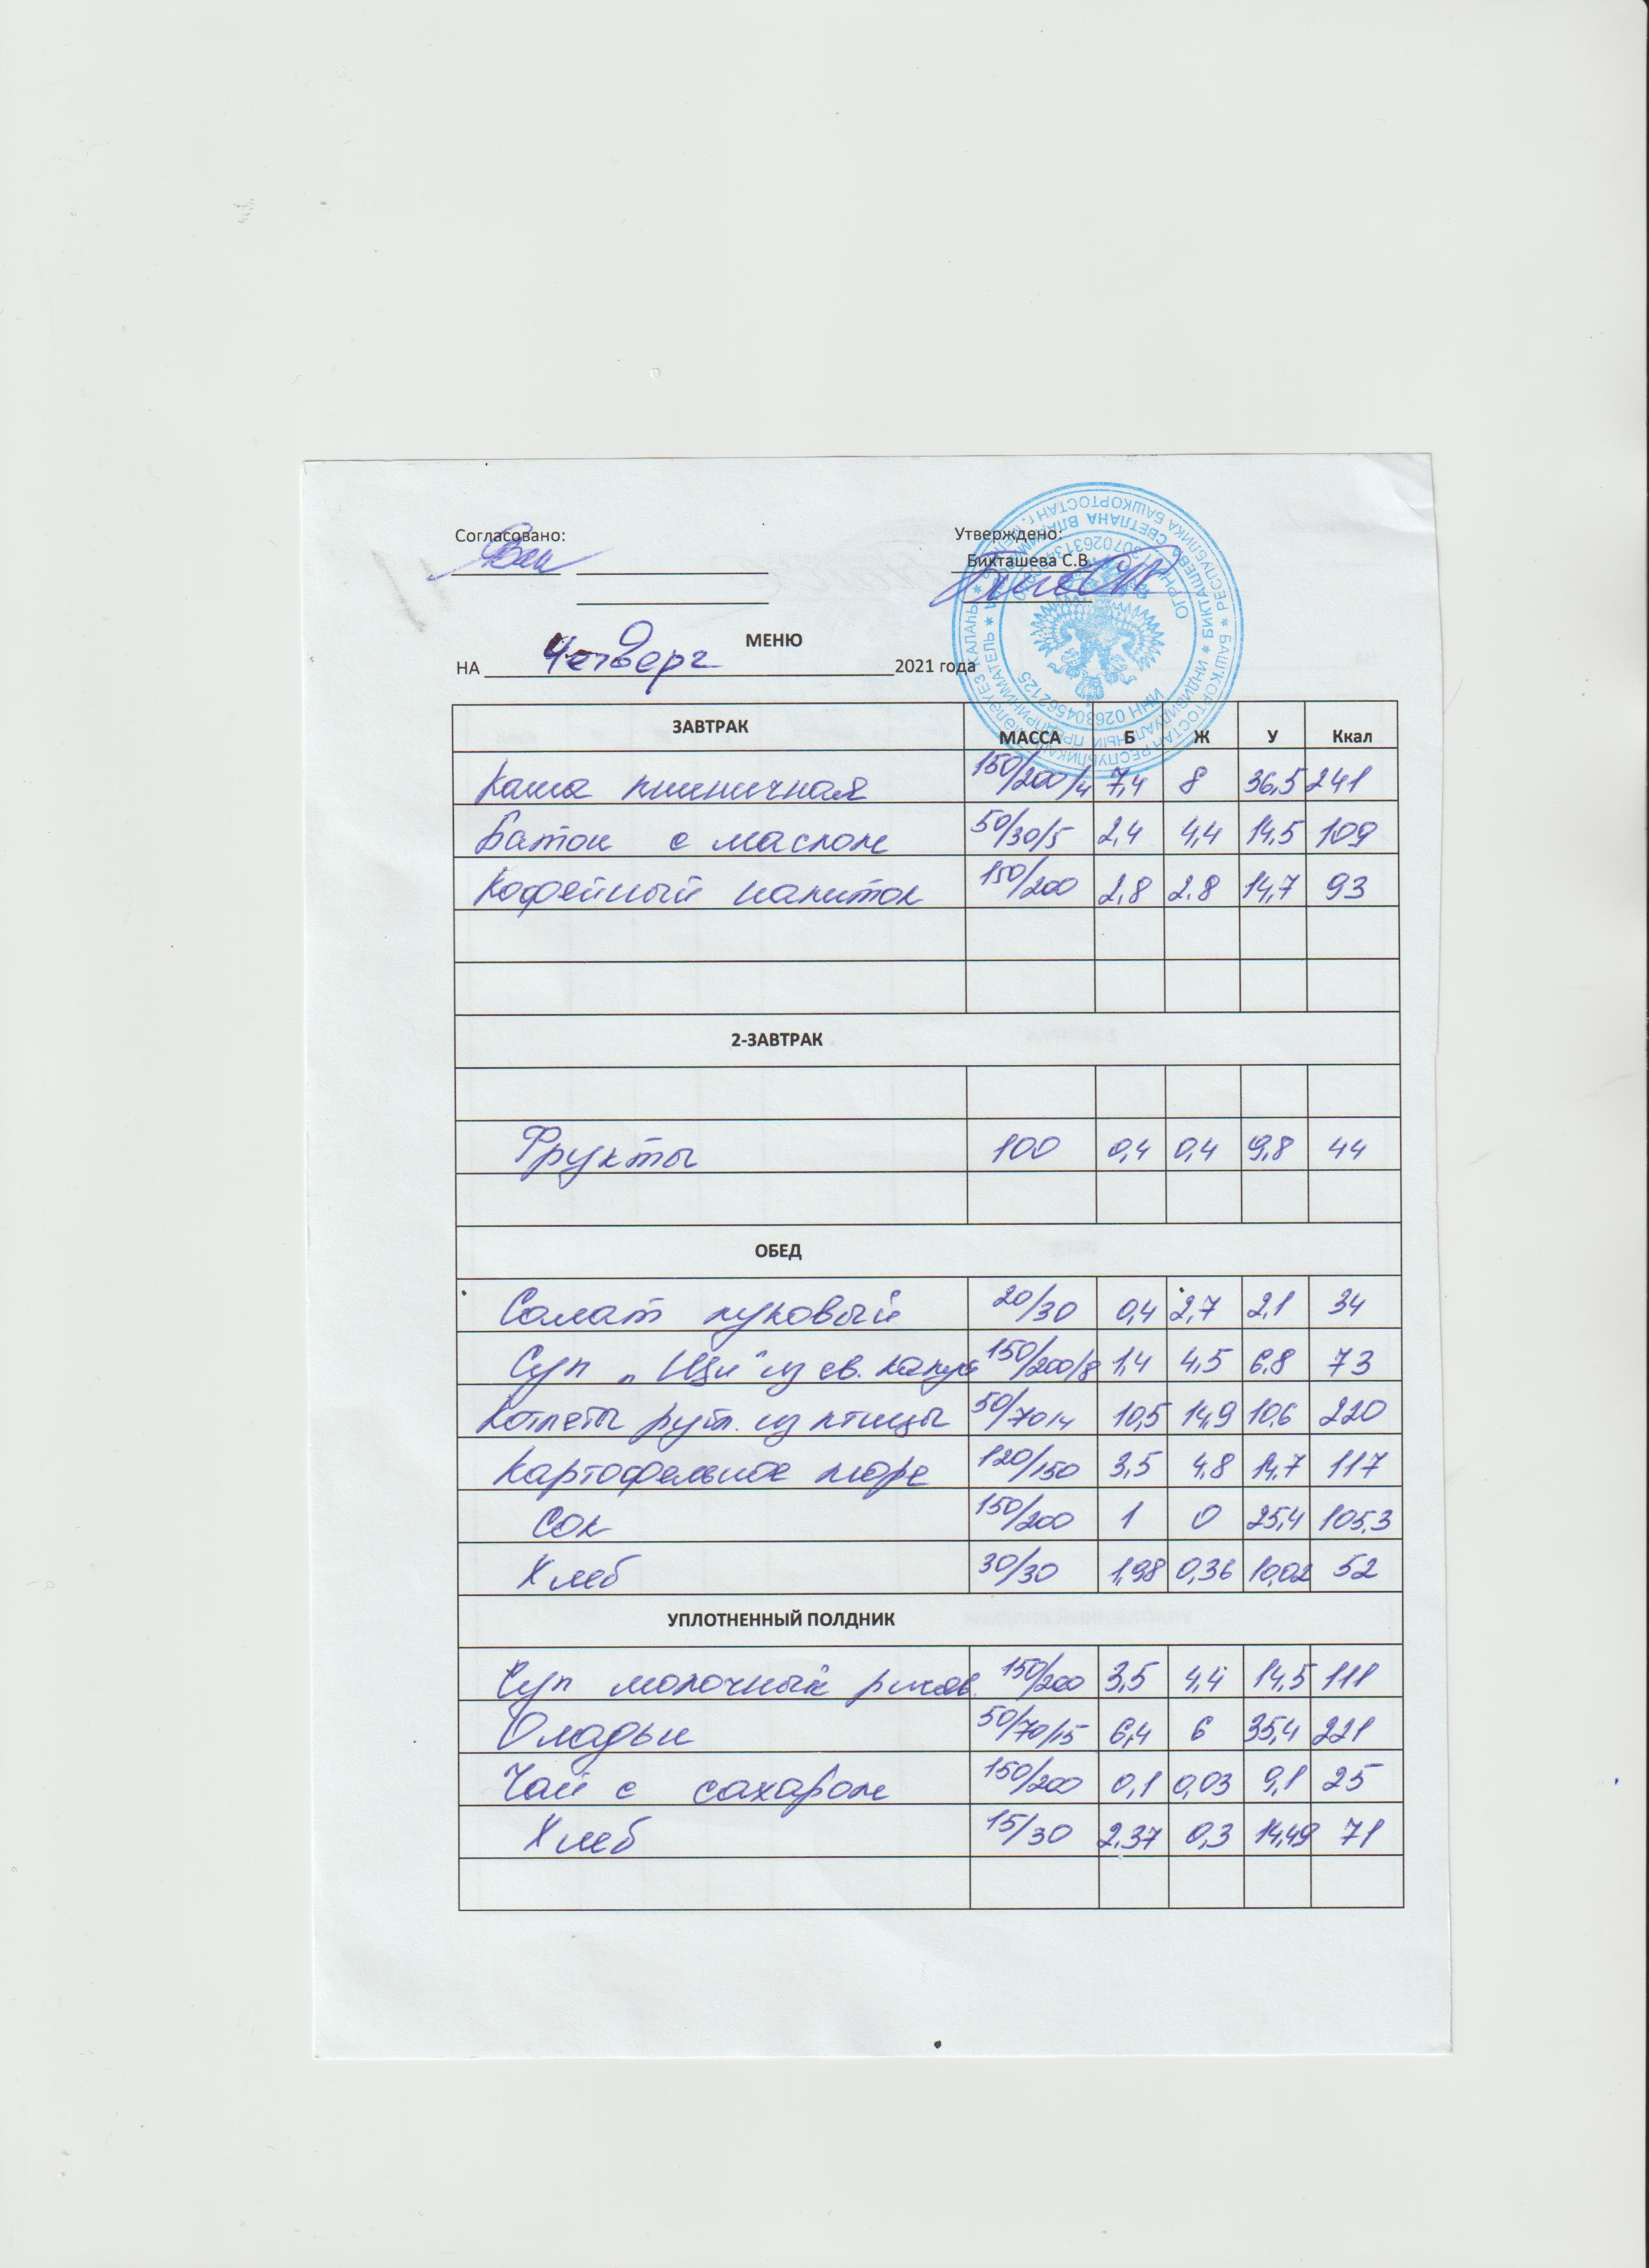 Согласовано: Утверждено:
Бикташева С.В.
МЕНЮ
НА Четверг 2021 года
ЗАВТРАК МАССА Б Ж У Ккал
Каша пшеничная 150/200/4 7,4 8 36,5 241
Батон с маслом 50/30/5 2,4 4,4 14,5 109
Кофейный напиток 150/200 2,8 2.8 14,7 93
2-ЗАВТРАК
Фрукты 100 0,4 0,4 9,8 44
ОБЕД
Салат луковый 20/30 0,4 2,7 2,1 34
Суп „Щи" из св. капус 150/200/8 1,4 4,5 6.8 73
Котлеты рубл. из птицы 50/70/4 10,5 14,9 10,6 220
Картофельное пюре 120/150 3,5 4,8 14,7 117
Сок 150/200 1 0 25,4 105,3
Хлеб 30/30 1,98 0,36 10,02 52
УПЛОТНЕННЫЙ ПОЛДНИК
Суп молочный рисов. 150/200 3,5 4,4 14,5 111
Оладьи 50/70/15 6,4 6 35,4 221
Чай с сахаром 150/200 0,1 0,03 9,1 25
Хлеб 15/30 2.37 0,3 14,49 71